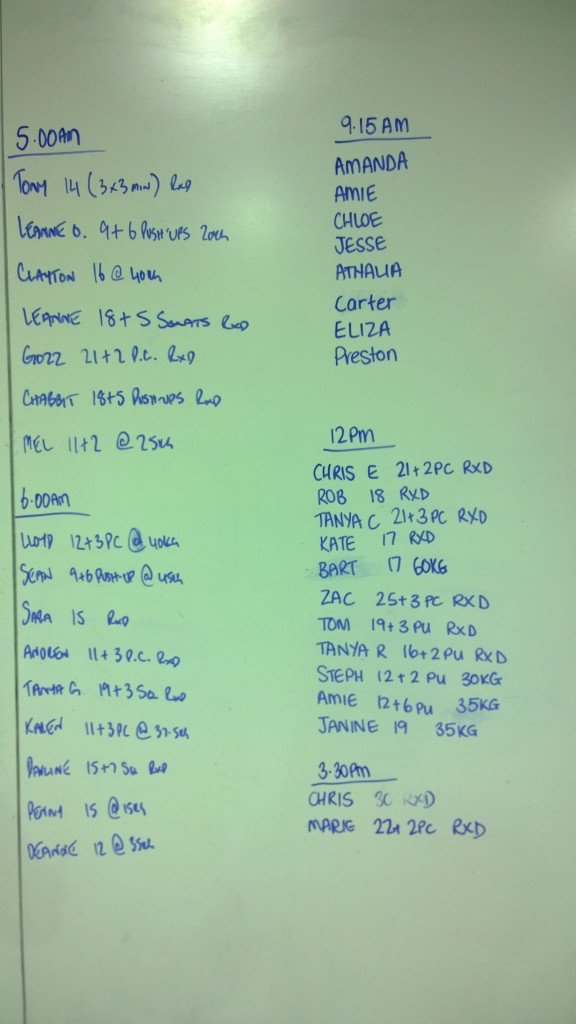 5.00AM
TONY 14 (3x3 MIN) RXD
LEANNE D. 9+6 PUSH'UPS 20KG
CLAYTON 16 @ 40KG
LEANNE 18+5 SQUATS RXD
GOZZ 21+2 P.C. RXD
CHABBIT 18+5 PUSH-UPS RXD
MEL 11+2 @ 25KG
6.00AM
LLOYD 12+3PC @ 40KG
SEAN 9+6 PUSH-UP @ 45KG
SARA 15 RXD
ANDREW 11+3 P.C. RXD
TANYA G. 19+3 SQ RXD
KAREN 11+3PC @ 37.5KG
PAULINE 15+7 SQ RXD
PENNY 15 @ 15KG
DEANNE 12 @ 35KG
9.15AM
AMANDA
AMIE
CHLOE
JESSE
ATHALIA
Carter
ELIZA
Preston
12PM
CHRIS E 21+2PC RXD
ROB 18 RXD
TANYA C 21+3PC RXD
KATE 17 RXD
BART 17 60KG
ZAC 25+3 PC RXD
TOM 19+3 PU RXD
TANYA R 16+2 PU RXD
STEPH 12+2 PU 30KG
AMIE 12+6 PU 35KG
JANINE 19 35KG
3.30PM
CHRIS RXD
MARIE 22+ 2PC RXD